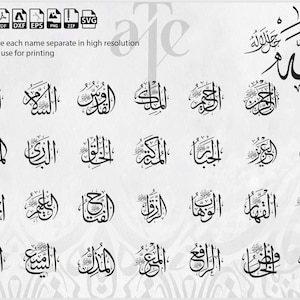 DXF EPS SVG
e each name separate in high resolution
use for printing
atc
الله جل جلاله
الرحمن الرحيم الملك القدوس السلام
العزيز الجبار المتكبر الخالق البارئ
القهار الوهاب الرزاق الفتاح العليم
الخافض الرافع المعز المذل السميع